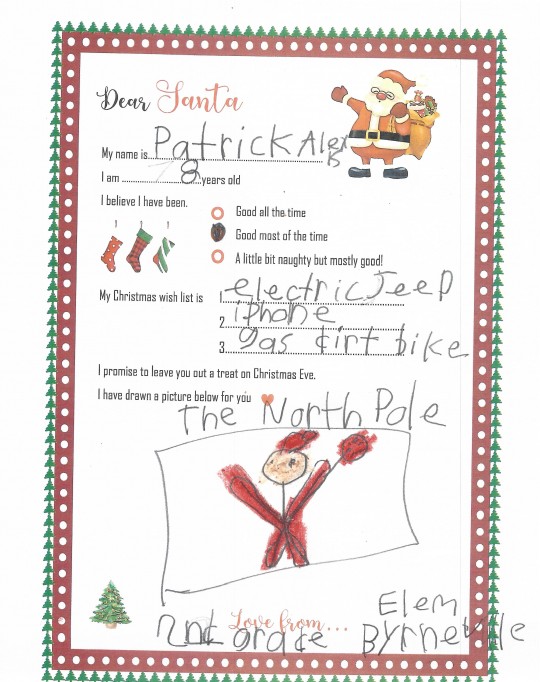 Dear Santa
My name is Patrick Alex B
I am 8 years old
I believe I have been.
Good all the time
Good most of the time
A little bit naughty but mostly good!
My Christmas wish list is
1. electric Jeep
2. iphone
3. gas dirt bike
I promise to leave you out a treat on Christmas Eve.
I have drawn a picture below for you
The North Pole
Love from...
2nd grade Elem Byrneville